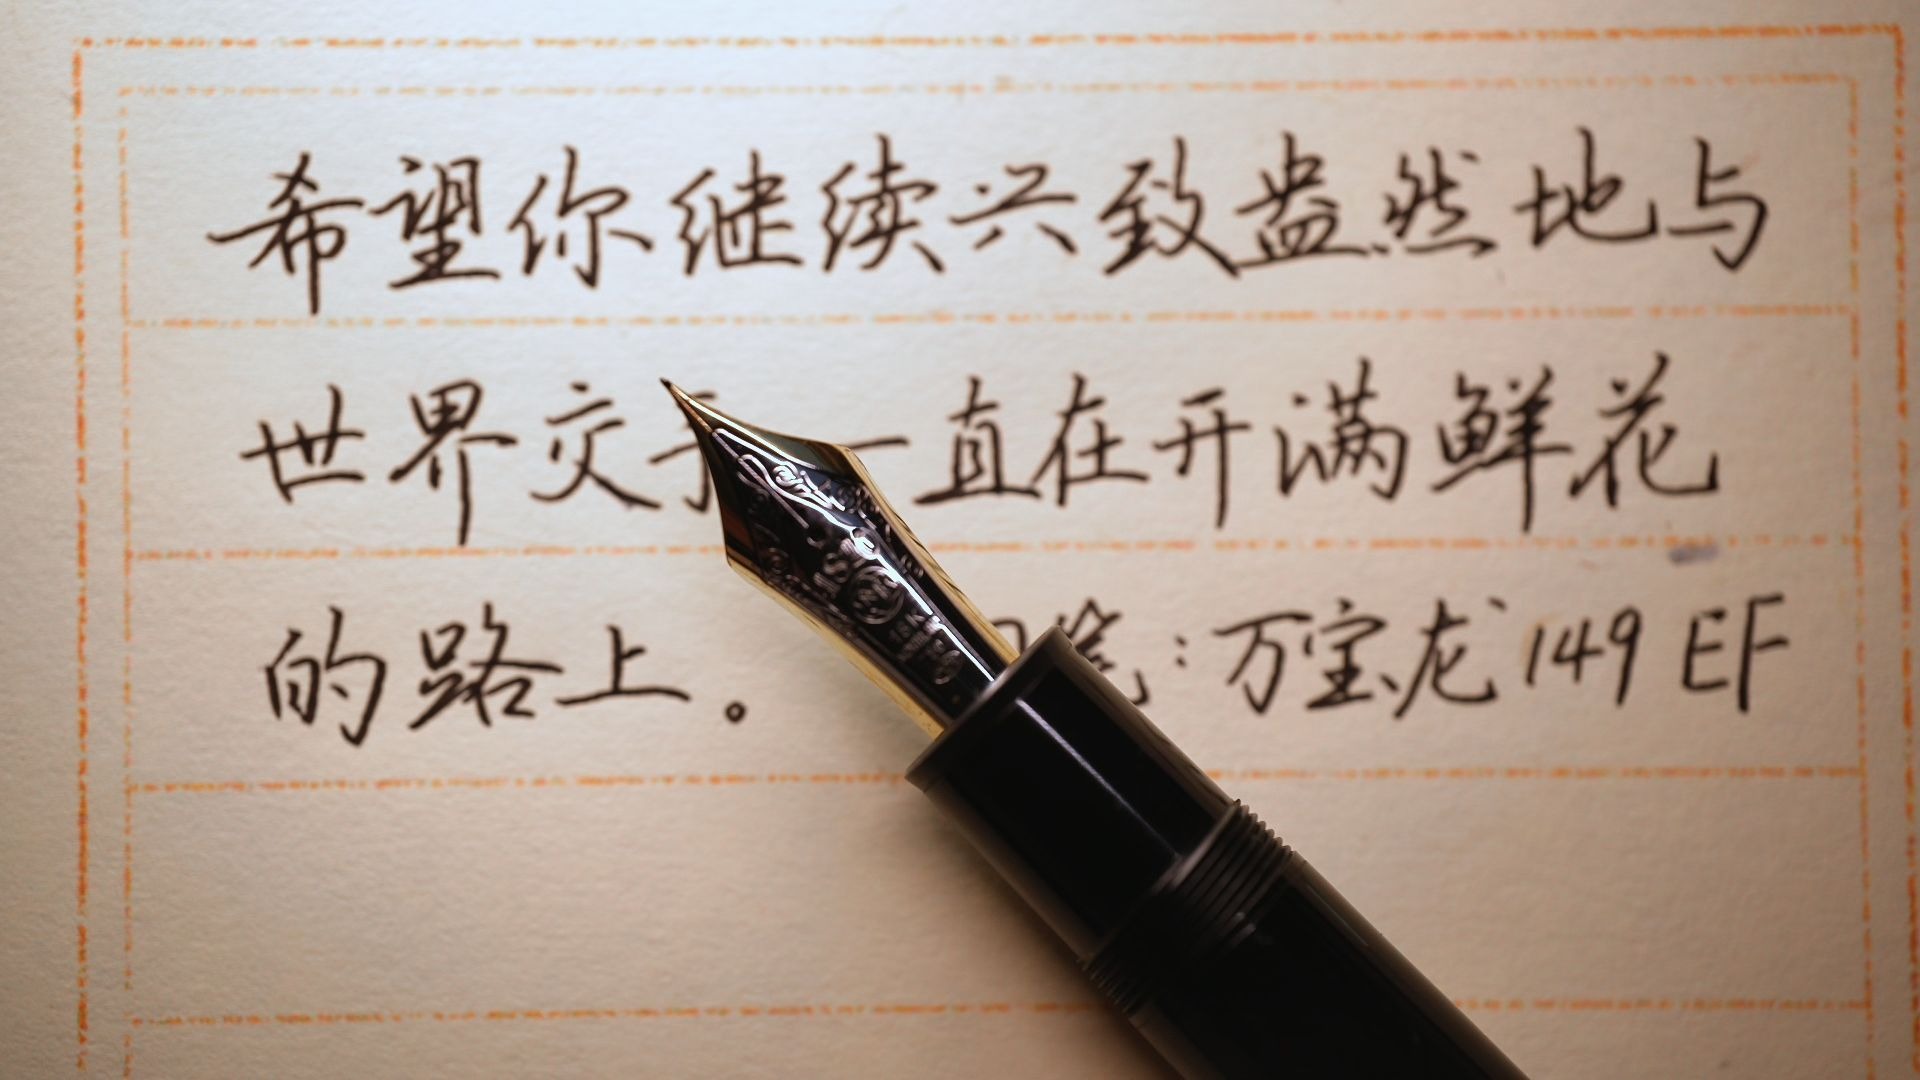 希望你继续兴致盎然地与
世界交手 一直在开满鲜花
的路上。 笔:万宝龙 149 EF